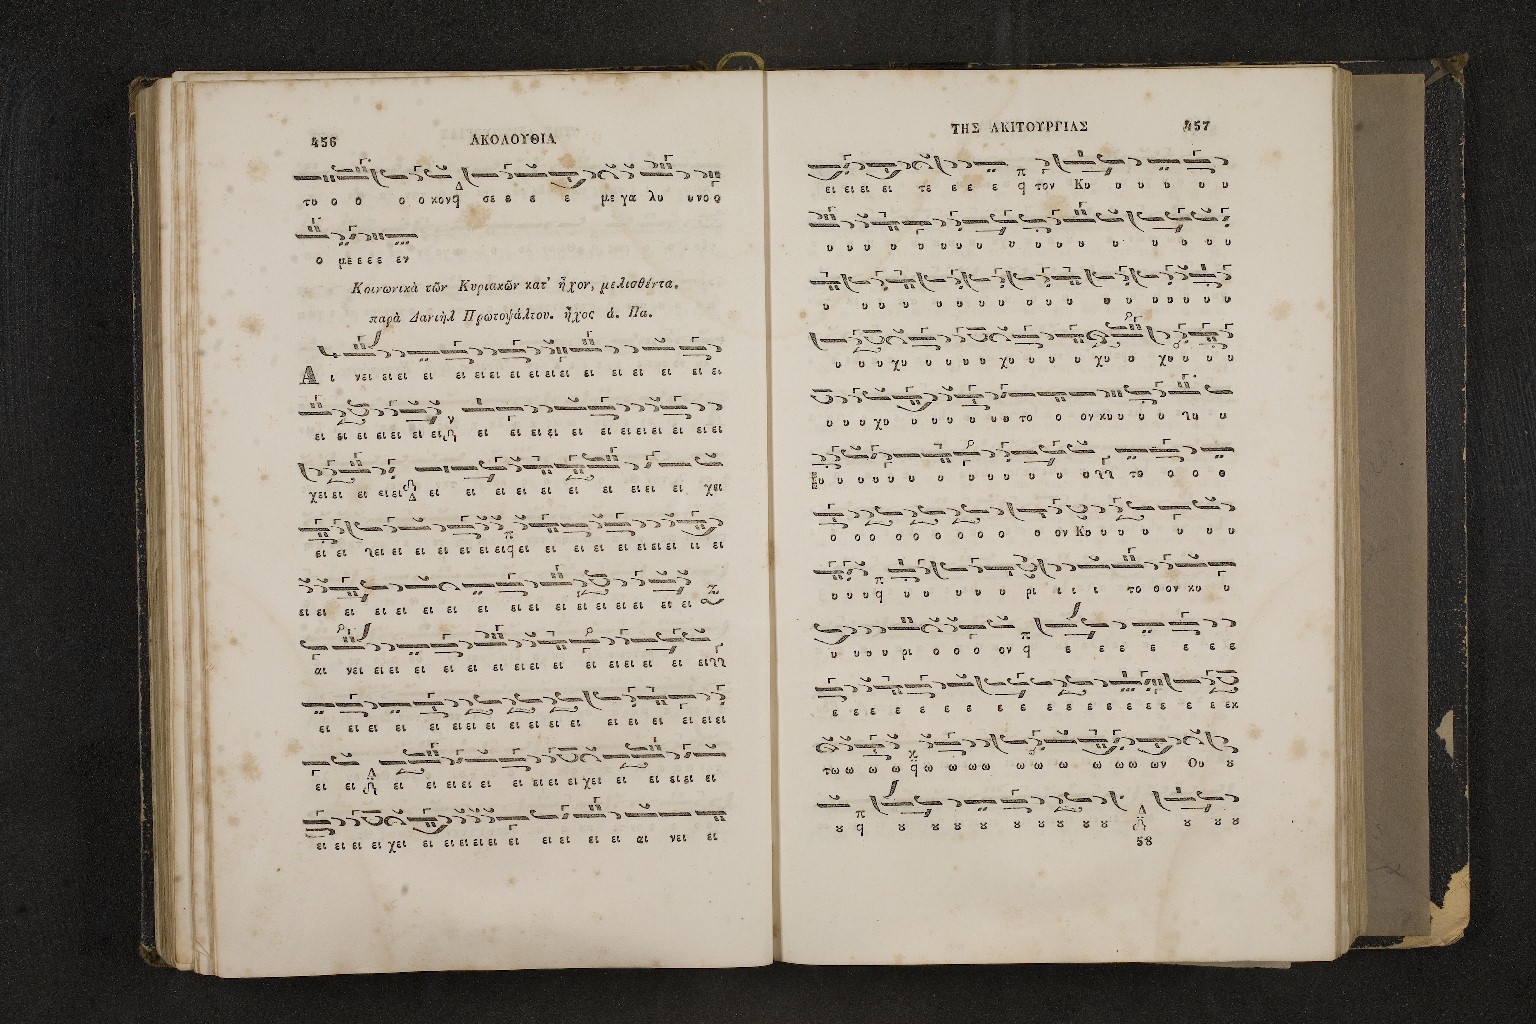 456 ΑΚΟΛΟΥΘΙΑ
τυ ο ο ο ο κον σε ε ε ε με γα λυ υνο ο
ο με ε ε ε εν
Κοινωνικὰ τῶν Κυριακῶν κατ' ἦχον, μελισθέντα.
παρὰ Δανιὴλ Πρωτοψάλτου. ἦχος ά. Πα.
Α ι νει ει ει ει ει ει ει ει ει ει ει ει ει ει ει ει ει
ει ει ει ει ει ει ει ει ει ει ει ει ει ει ει ει ει ει ει
χει ει ει ει ει ει ει ει ει ει ει ει ει ει ει χει
ει ει ει ει ει ει ει ει ει ει ει ει ει ει ει ει ει
ει ει ει ει ει ει ει ει ει ει ει ει ει ει ει ει ει ει
αι νει ει ει ει ει ει ει ει ει ει ει ει ει ει ει ει ει
ει ει ει ει ει ει ει ει ει ει ει ει ει ει ει ει ει
ει ει ει ει ει ει ει ει ει ει χει ει ει ει ει ει
ει ει ει ει χει ει ει ει ει ει ει ει ει ει ει αι νει ει
ΤΗΣ ΛΚΙΤΟΥΡΓΙΑΣ 457
ει ει ει ει τε ε ε ε τον Κυ υ υ υ υ υ
υ υ υ υ υ υ υ υ υ υ υ υ υ υ υ υ υ υ
υ υ υ υ υ υ υ υ υ υ υ υ υ υ υ υ
υ υ υ χυ υ υ υ υ χυ υ υ υ χυ υ χυ υ υ υ
υ υ υ χυ υ υ υ υυ το ο ον κυυ υ υ υ
υ υ υ υυ υ υ υ υ υ υ υ υ υ το ο ο ο
ο ο ο ο ο ο ο ο ο ο ον Κυ υ υ υ υ υ υ
υ υ υ υ υ υ υ υ ρι ι ι ι το ο ον κυ υ
υ υυ υ ρι ο ο ο ον ε ε ε ε ε ε ε
ε ε ε ε ε ε ε ε ε ε ε ε ε ε ε ε ε ε εκ
τω ω ω ω ω ω ω ω ω ω ω ω ωω ων Ου ȣ
ȣ ȣ ȣ ȣ ȣ ȣ ȣ ȣ ȣ ȣ ȣ ȣ ȣ
58